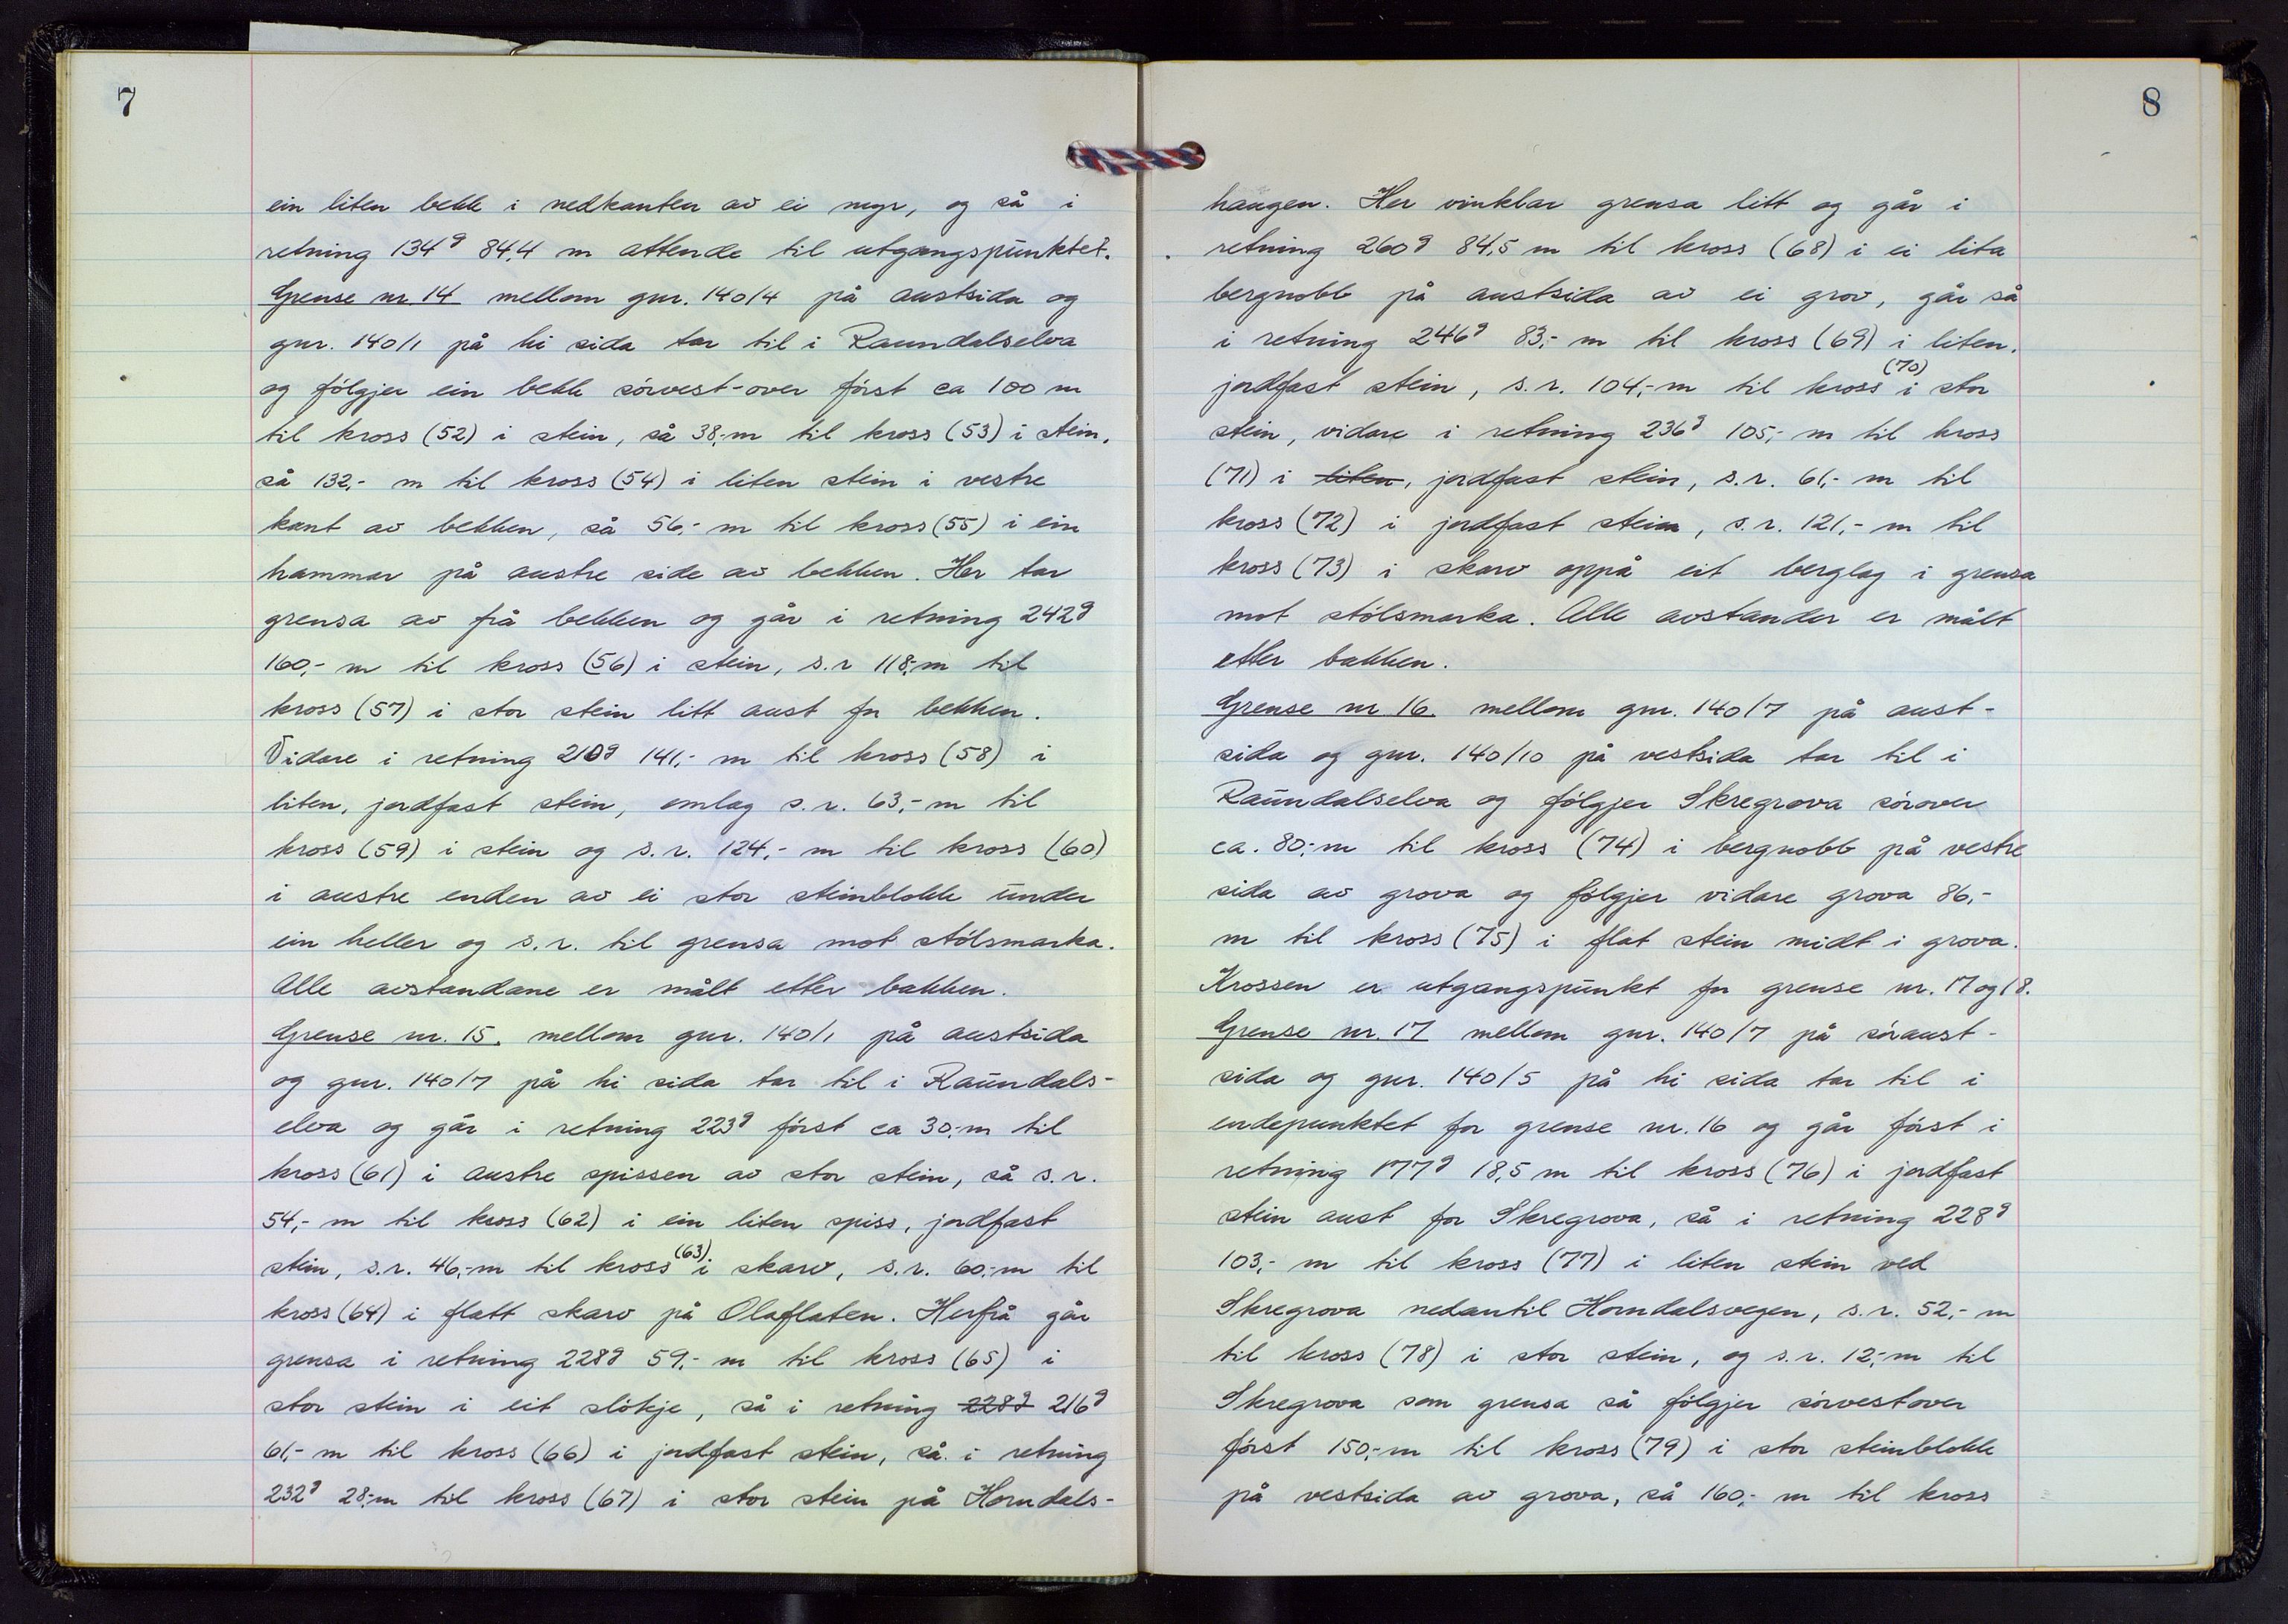 7
ein liten bekk i nedkanten av ei myr, og så i
retning 134g 84,4 m attende til utgangspunktet.
Grense nr 14 mellom gnr. 140/4 på austsida og
gnr. 140/1 på hi sida tar til i Raundalselva
og følgjer ein bekk sørvest-over først ca 100 m
til kross (52) i stein, så 38,-m til kross (53) i stein,
så 132,- m til kross (54) i liten stein i vestre
kant av bekken, så 56,- m til kross (55) i ein
hammar på austre side av bekken. Her tar
grensa av frå bekken og går i retning 242g
160,- m til kross (56) i stein, s.r 118,-m til
kross (57) i stor stein litt aust for bekken.
Vidare i retning 210g 141,- m til kross (58) i
liten, jordfast stein, omlag s.r. 63,- m til
kross (59) i stein og s.r. 124,- m til kross (60)
i austre enden av ei stor steinblokk under
ein heller og s.r. til grensa mot stølsmarka.
Alle avstandane er målt etter bakken.
Grense nr. 15. mellom gnr. 140/1 på austsida
og gnr. 140/7 på hi sida tar til i Raundals-
elva og går i retning 223g først ca 30,-m til
kross (61) i austre spissen av stor stein, så s.r.
54,- m til kross (62) i ein liten spiss, jordfast
stein, s.r. 46,-m til kross (63) i skarv, s.r. 60,-m til
kross (64) i flatt skarv på Olaflaten. Herfrå går
grensa i retning 228g 59,- m til kross (65) i
stor stein i eit sløkje, så i retning 228g 216g
61,- m til kross (66) i jordfast stein, så i retning
232g 28,-m til kross (67) i stor stein på Horndals-
8
haugen. Her vinklar grensa litt og går i
retning 260g 84,5 m til kross (68) i ei lita
bergnobb på austsida av ei grov, går så
i retning 246g 83,- m til kross (69) i liten,
jordfast stein, s.r. 104,-m til kross (70) i stor
stein, vidare i retning 236g 105,- m til kross
(71) i liten, jordfast stein, s.r. 61,- m til
kross (72) i jordfast stein, s.r. 121,- m til
kross (73) i skarv oppå eit berglag i grensa
mot stølsmarka. Alle avstander er målt
etter bakken.
Grense nr 16 mellom gnr. 140/7 på aust-
sida og gnr. 140/10 på vestsida tar til i
Raundalselva og følgjer Skregrova sørover
ca. 80,-m til kross (74) i bergnobb på vestre
sida av grova og følgjer vidare grova 86,-
m til kross (75) i flat stein midt i grova.
Krossen er utgangspunkt for grense nr. 17 og 18.
Grense nr. 17 mellom gnr. 140/7 på søraust-
sida og gnr. 140/5 på hi sida tar til i
endepunktet for grense nr. 16 og går først i
retning 177g 18,5 m til kross (76) i jordfast
stein aust for Skregrova, så i retning 228g
103,- m til kross (77) i liten stein ved
Skregrova nedantil Horndalsvegen, s.r. 52,- m
til kross (78) i stor stein, og s.r. 12,-m til
Skregrova som grensa så følgjer sørvestover
først 150,-m til kross (79) i stor steinblokk
på vestsida av grova, så 160,- m til kross